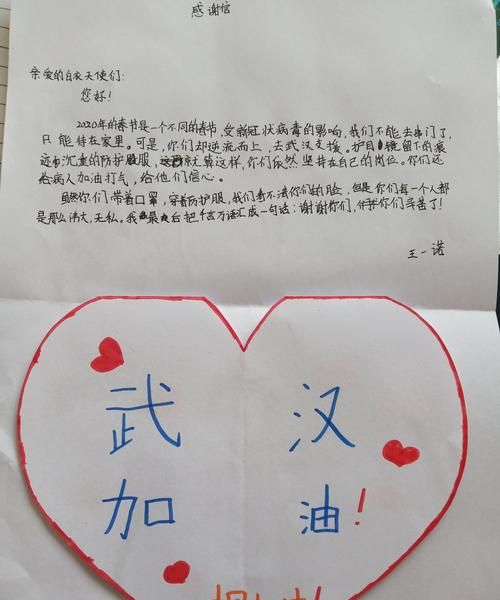 感谢信
亲爱的白衣天使们:
您好!
2020年的春节是一个不同的春节,受新冠状病毒的影响,我们不能去串门了,
只能待在家里。可是,你们却逆流而上,去武汉支援。护目镜留下的痕
迹和沉重的防护服,就算这样,你们依然坚持在自己的岗位。你们还
给病人加油打气,给他们信心。
虽然你们带着口罩,穿着防护服,我们看不清你们的脸,但是你们每一个人都
是那么伟大、无私。我最后把千言万语汇成一句话:谢谢你们,你们辛苦了!
王一诺
武汉
加油!